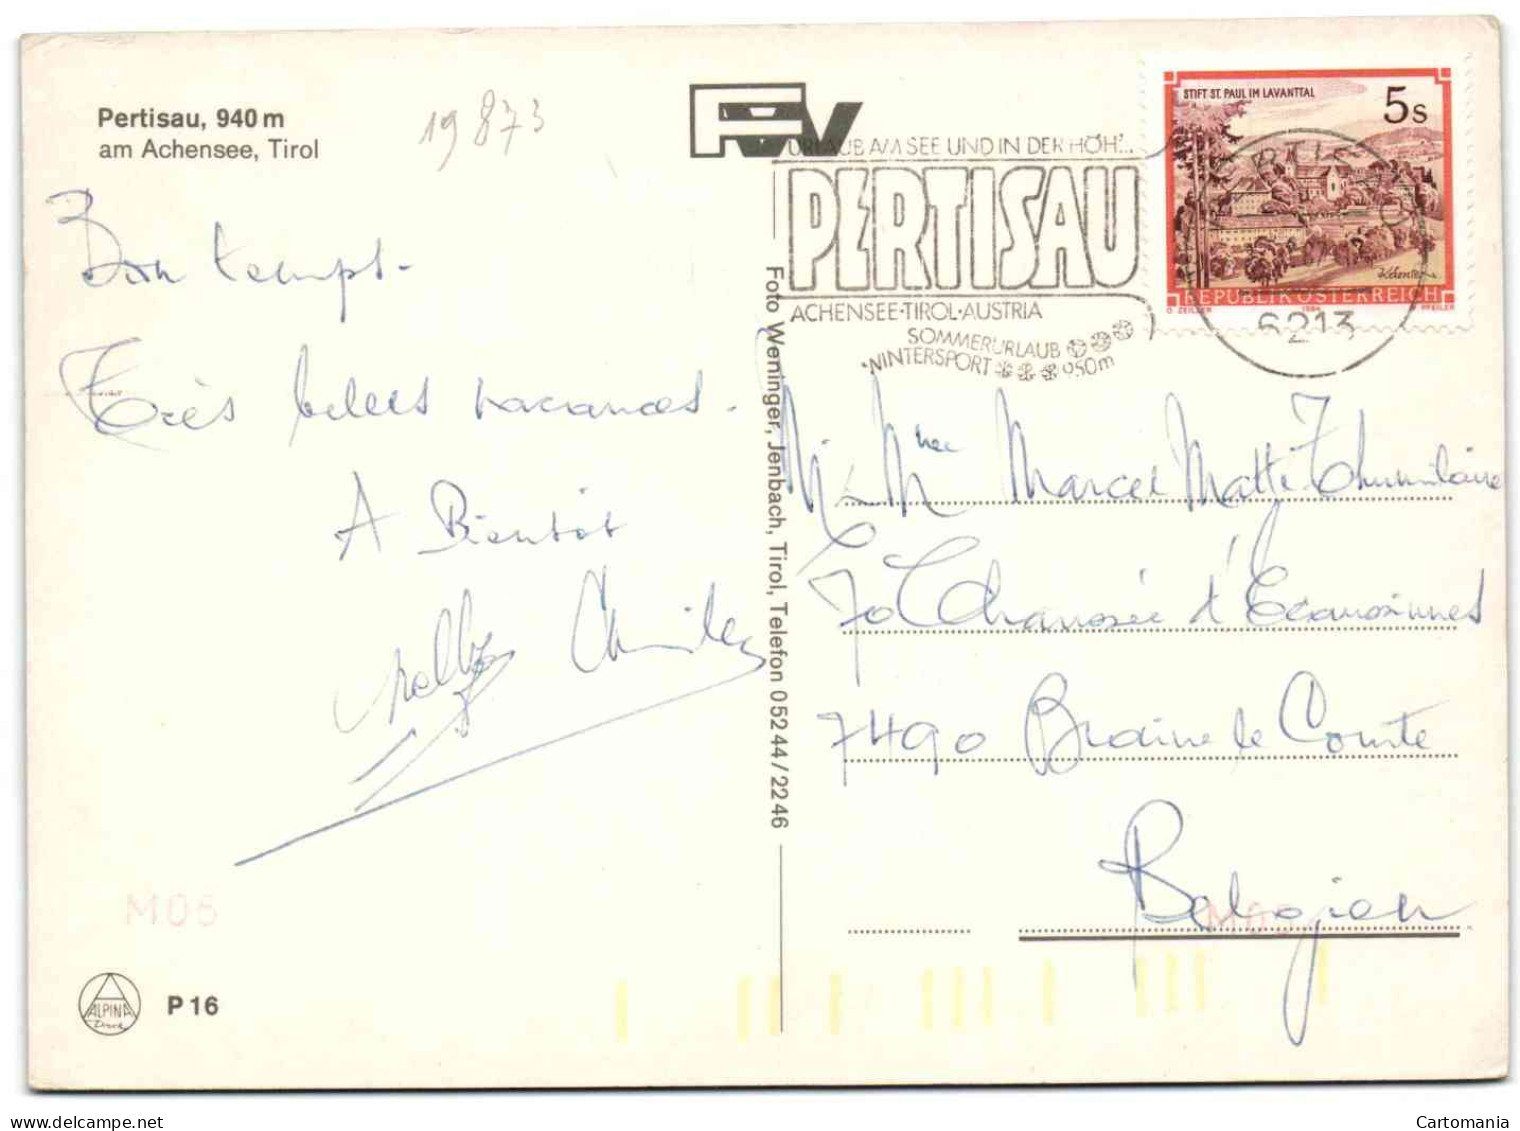 Pertisau, 940 m
am Achensee, Tirol
19 873
Bon temps.
Très belles vacances.
A Bientôt
Nelly
M06
ALPINA
Druck
P 16
Foto Weninger, Jenbach, Tirol, Telefon 05244/2246
FW
URLAUB AM SEE UND IN DER HÖH'...
PERTISAU
ACHENSEE·TIROL·AUSTRIA
SOMMERURLAUB
WINTERSPORT 950m
STIFT ST. PAUL IM LAVANTTAL
5 S
REPUBLIK ÖSTERREICH
O. ZEILLER 1984 PFEILER
PERTISAU
6213
M. Mme Marcel
70 Chaussée d'Ecaussinnes
7490 Braine le Comte
Belgien
Cartomania
www.delcampe.net